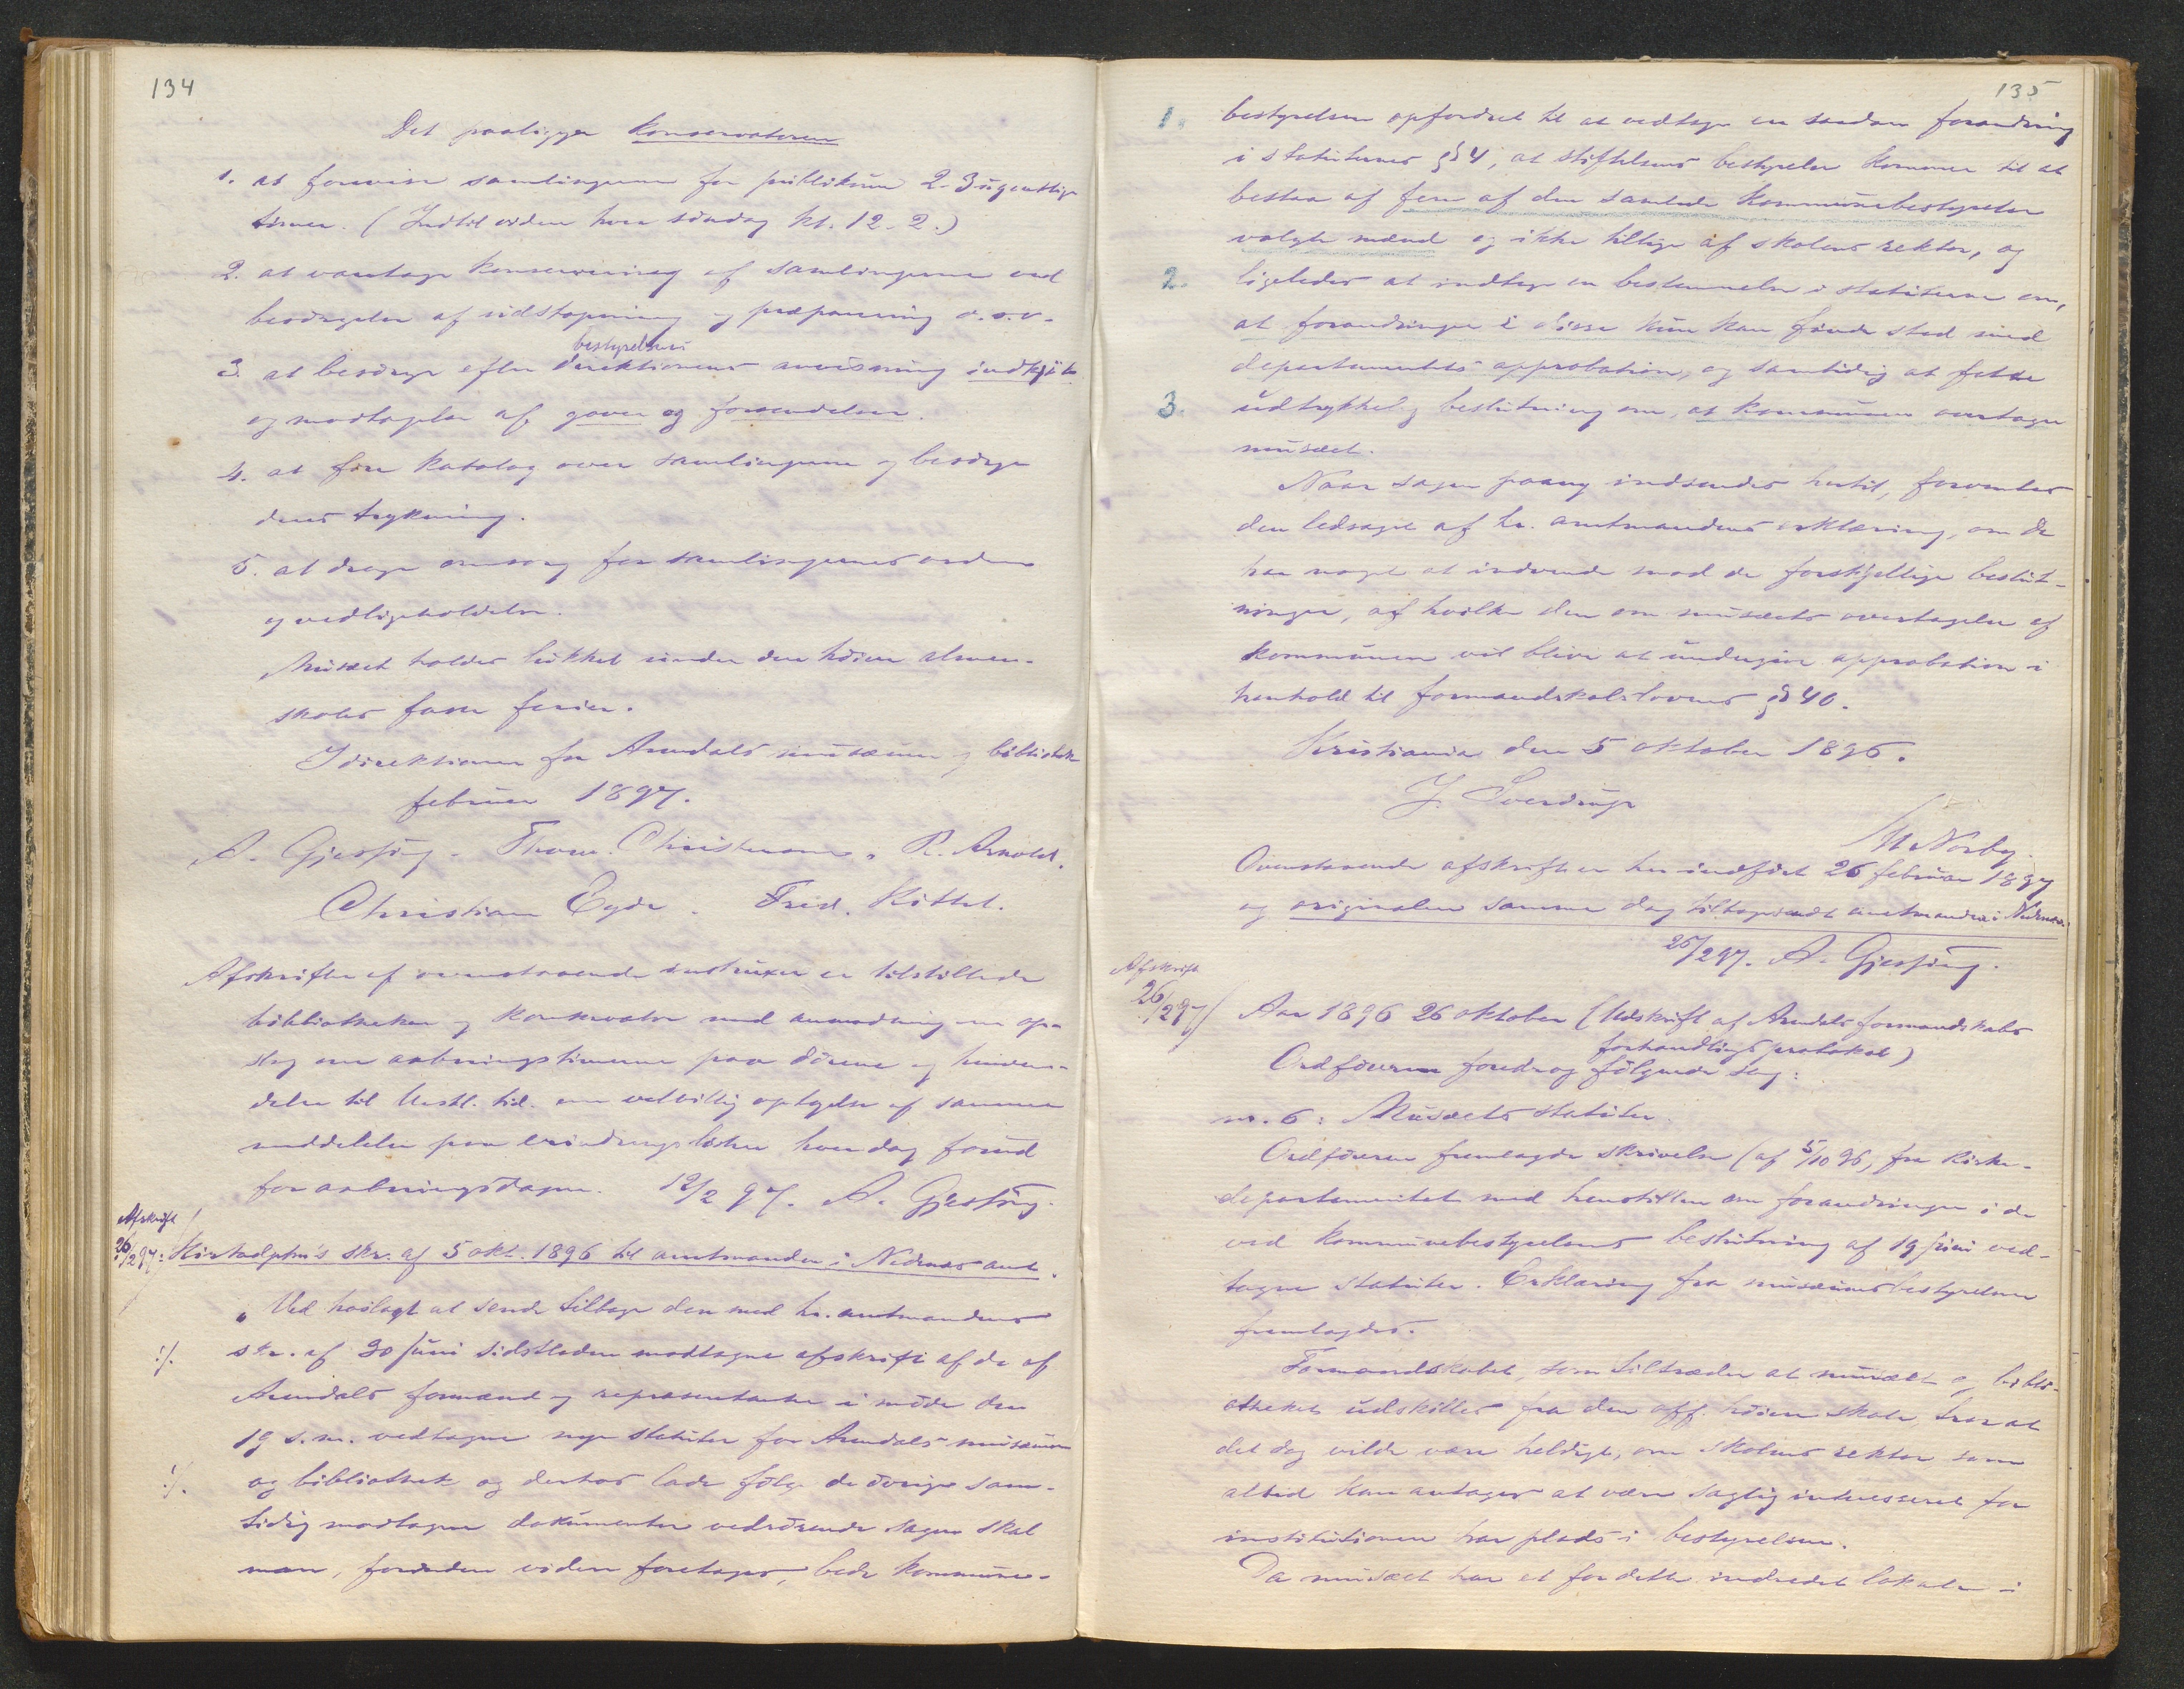 134
Det paaligger konservatoren
1. at forevise samlingerne for publikum 2-3 ugentlige
timer. (Indtil videre hver söndag kl. 12-2.)
2. at varetage konservering af samlingerne ved
besörgelse af udstopning og præparering o.s.v.
bestyrelsens
3. at besörge efter direktionens anvisning indkjöb
og modtagelse af gaver og forsendelser.
4. at före katalog over samlingerne og besörge
dens trykning.
5. at drage omsorg for samlingernes orden
og vedligeholdelse.
Musæet holdes lukket under den höiere almen-
skoles faste ferier.
I direktionen for Arendals musæum og bibliothek
februar 1897.
A. Gjessing. Thorv. Christensen. R. Arnold.
Christian Eyde. Fred. Kittel.
Afskrifter af ovenstaaende instruxer er tilstillede
bibliothekar og konservator med anmodning om op-
slag om aabningstimerne paa dörene og henven-
delse til Vestl. tid. om velvillig optagelse af samme
meddelelse paa erindringslisten hver dag forud
for aabningsdagene. 12/2 97. A. Gjessing.
Afskrift
26/2 97: Kirkedptm's skr. af 5 okt. 1896 til amtmanden i Nedenæs amt.
"Ved hoslagt at sende tilbage den med hr. amtmandens
./. skr. af 30 juni sidstleden modtagne afskrift af de af
Arendals formænd og repræsentanter i möde den
19 s.m. vedtagne nye statuter for Arendals musæum
./. og bibliothek og derhos lade fölge de övrige sam-
tidig modtagne dokumenter vedrörende sagen skal
man, forinden videre foretages, bede kommune-
135
1. bestyrelsen opfordret til at vedtage en saadan forandring
i statuternes § 4, at stiftelsens bestyrelse kommer til at
bestaa af fem af den samlede kommunebestyrelse
valgte mænd og ikke tillige af skolens rektor, og
2. ligeledes at indtage en bestemmelse i statuterne om,
at forandringer i disse kun kan finde sted med
departementets approbation, og samtidig at fatte
3. udtrykkelig beslutning om, at kommunen overtager
musæet.
Naar sagen paany indsendes hertil, forventes
den ledsaget af hr. amtmandens erklæring, om De
har noget at indvende mod de forskjellige beslut-
ninger, af hvilke den om musæets overtagelse af
kommunen vil blive at undergive approbation i
henhold til formandskabslovens § 40.
Kristiania den 5 oktober 1896.
J. Sverdrup
M Norby.
Ovenstaaende afskrift er her indfört 26 februar 1897
og originalen samme dag tilbagesendt amtmanden i Nedenæs.
26/2 97. A. Gjessing.
Afskrift
26/2 97/ Aar 1896 26 oktober (Udskrift af Arendals formandskabs
forhandlingsprotokol)
Ordföreren foredrog fölgende sag:
nr. 6: Musæets statuter.
Ordföreren fremlagde skrivelse (af 5/10 96, fra kirke-
departementet med henstillen om forandringer i de
ved kommunebestyrelsens beslutning af 19 juni ved-
tagne statuter. Erklæring fra musæumsbestyrelsen
fremlagdes.
Formandskabet, som tiltræder at musæet og bibli-
otheket udskilles fra den off. höiere skole, tror at
det dog vilde være heldigt, om skolens rektor som
altid kan antages at være saglig interesseret for
institutionen har plads i bestyrelsen.
Da musæet har et for dette indredet lokale i